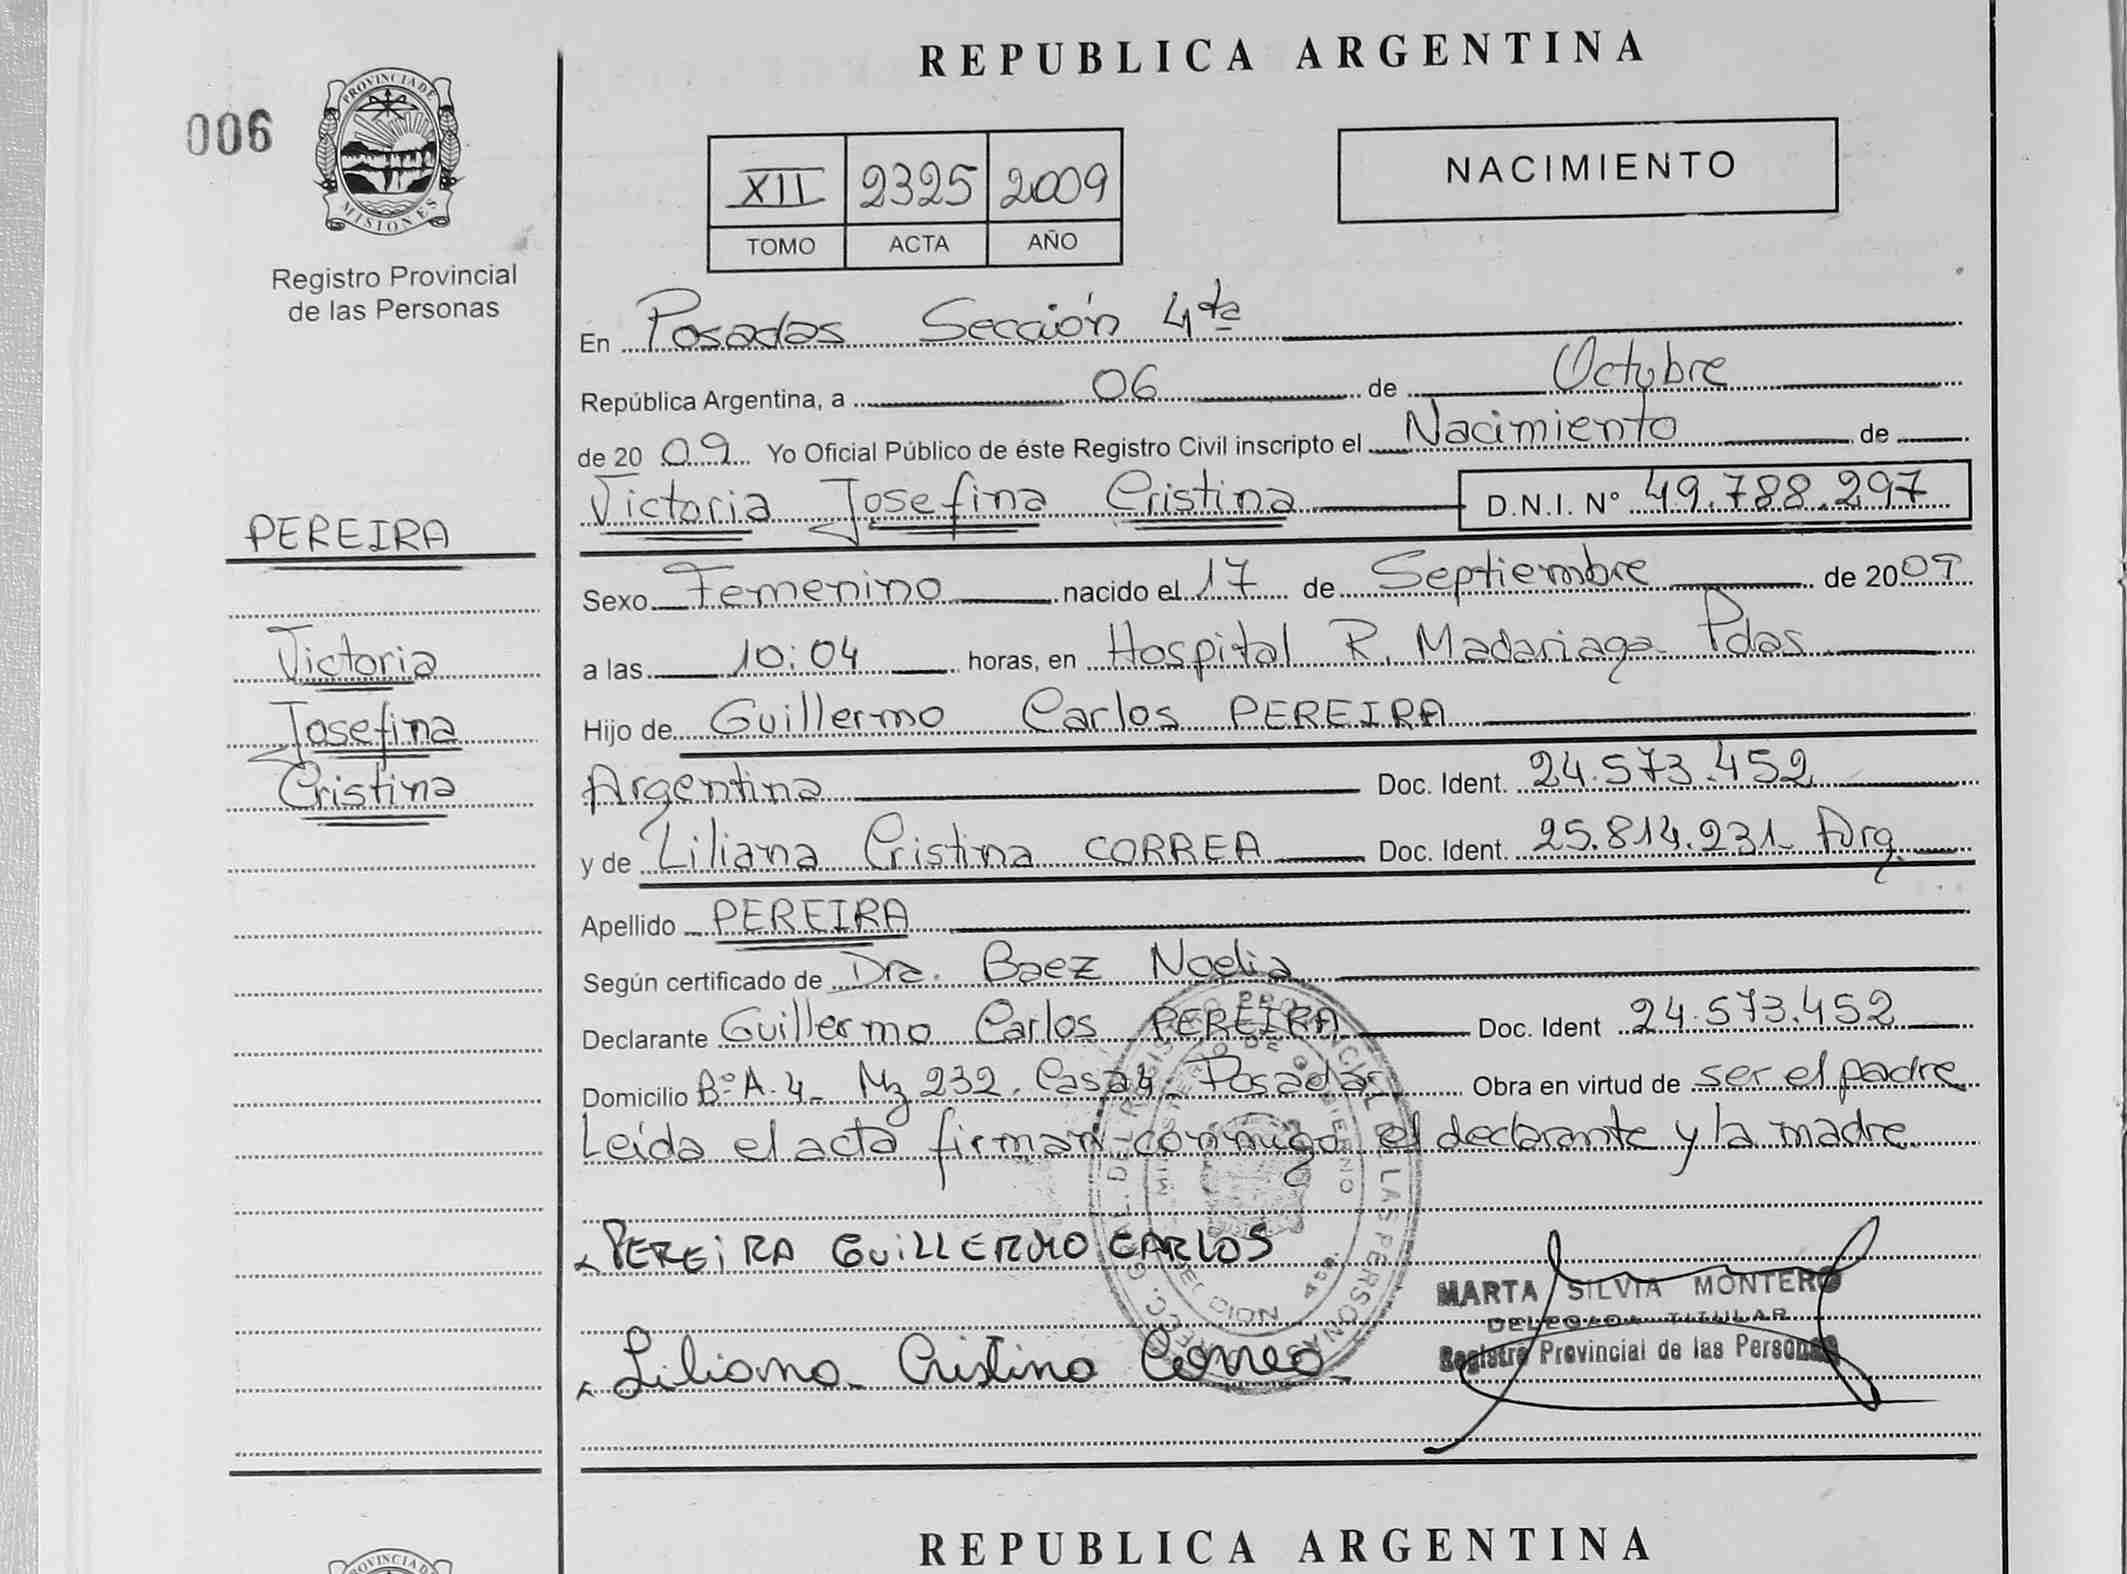 REPUBLICA ARGENTINA
006
PROVINCIA DE
MISIONES
Registro Provincial
de las Personas
XII 2325 2009
TOMO ACTA AÑO
NACIMIENTO
En Posadas Sección 4ta
República Argentina, a 06 de Octubre
de 2009 Yo Oficial Público de éste Registro Civil inscripto el Nacimiento de
Victoria Josefina Cristina D.N.I. Nº 49.788.297
PEREIRA
Victoria
Josefina
Cristina
Sexo Femenino nacido el 17 de Septiembre de 2009
a las 10:04 horas, en Hospital R. Madariaga Pdas
Hijo de Guillermo Carlos PEREIRA
Argentina Doc. Ident. 24.573.452
y de Liliana Cristina CORREA Doc. Ident. 25.814.231 Arg.
Apellido PEREIRA
Según certificado de Dra. Baez Noelia
Declarante Guillermo Carlos PEREIRA Doc. Ident 24.573.452
Domicilio Bº A-4- Mz 232. Casa 4 Posadas Obra en virtud de ser el padre
Leída el acta firman conmigo el declarante y la madre
PEREiRA GUiLLERMO CARLOS
Liliana Cristina Correa
MARTA SILVIA MONTERO
DELEGADA TITULAR
Registro Provincial de las Personas
REPUBLICA ARGENTINA